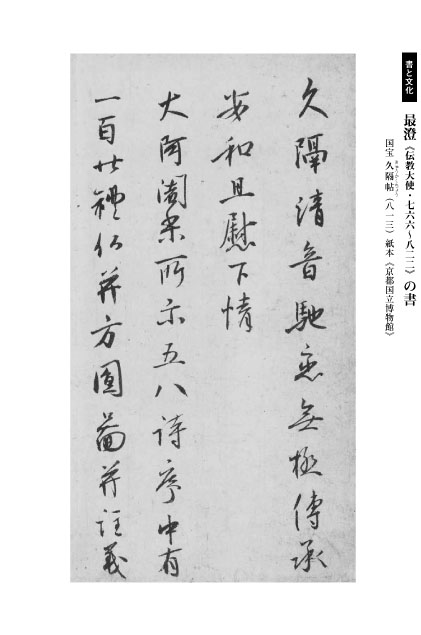 書と文化
最澄《伝教大使・七六六〜八二二》の書
国宝 久隔帖（八一三）紙本《京都国立博物館》
きゅうかくじょう
久隔清音馳恋無極傳承
安和且慰下情
大阿闍梨所示五八詩序中有
一百廿禮仏并方圓圖并註義